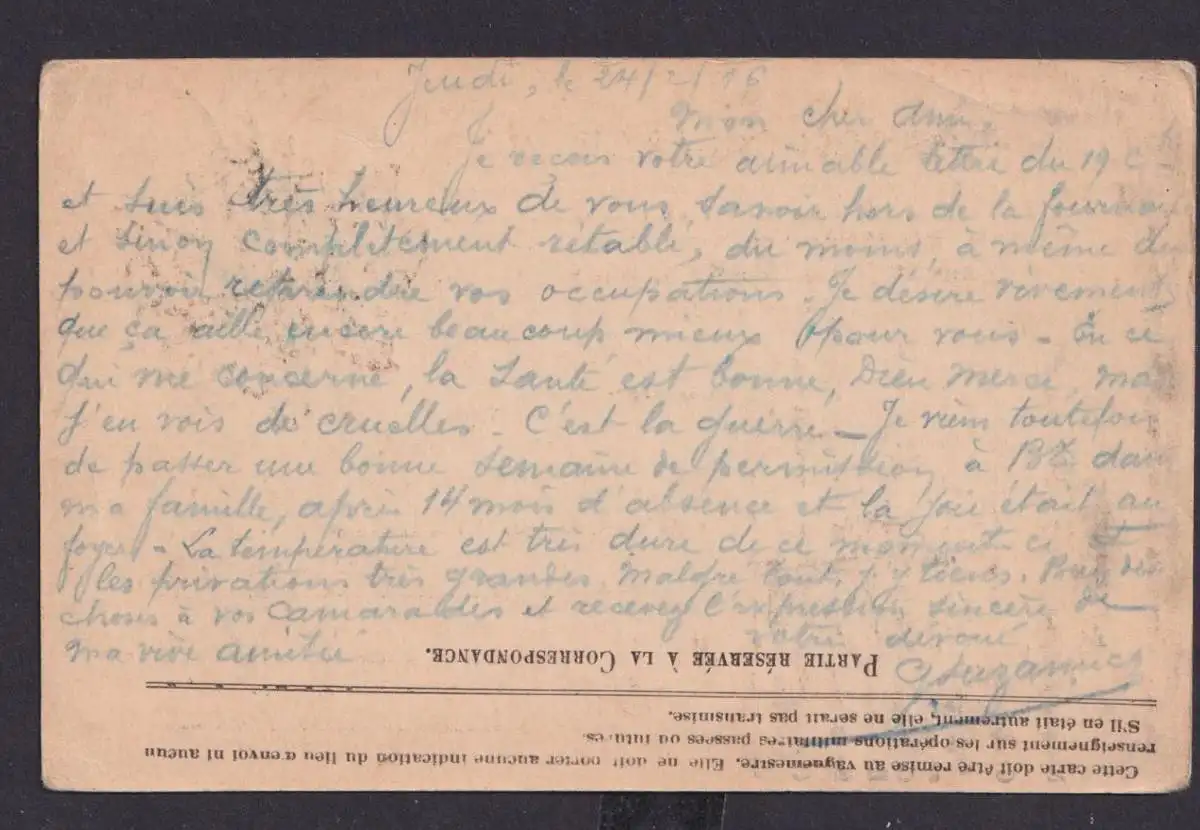 Jeudi, le 24/2/16
Mon cher ami,
Je reçois votre aimable lettre du 19 c
et suis très heureux de vous savoir hors de la fournai
et sinon complètement rétabli, du moins, à même de
pouvoir reprendre vos occupations. Je désire vivement
que ça aille encore beaucoup mieux pour vous - En ce
qui me concerne, la santé est bonne, Dieu merci, mai
j'en vois de cruelles - C'est la guerre - Je viens toutefois
de passer une bonne semaine de permission à Bx dan
ma famille, après 14 mois d'absence et la joie était au
foyer - La température est très dure de ce moment ci et
les privations très grandes. Malgré tout, j'y tiens. Bien des
choses à vos camarades et recevez l'expression sincère de
ma vive amitié
votre dévoué
PARTIE RÉSERVÉE A LA CORRESPONDANCE.
Cette carte doit être remise au vaguemestre. Elle ne doit porter aucune indication du lieu d'envoi ni aucun
renseignement sur les opérations militaires passées ou futures.
S'il en était autrement, elle ne serait pas transmise.